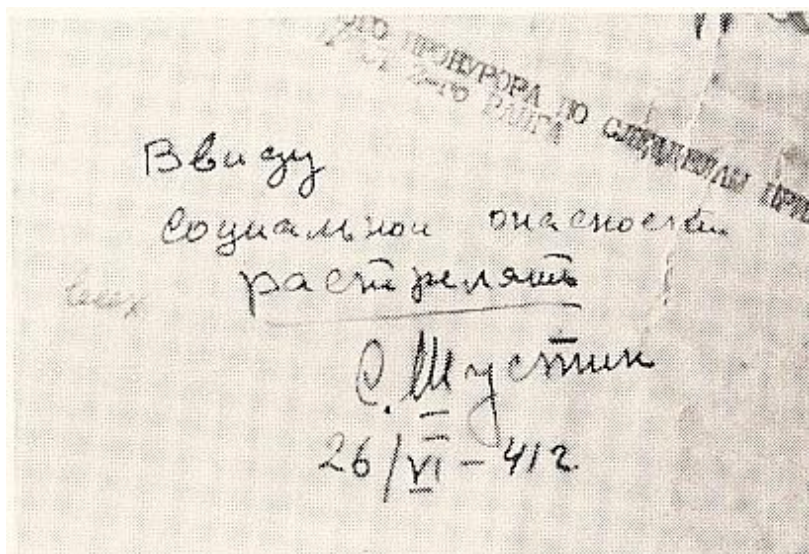 ПРОКУРОРА ПО СЛЕДДЕЛАМ
2-ГО РАНГА
Ввиду
социальной опасности
всех расстрелять
С. Шустин
26/VI – 41 г.